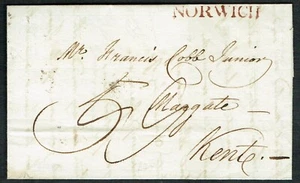 NORWICH
Mr. Francis Cobb Junior
Maggate —
Kent. —